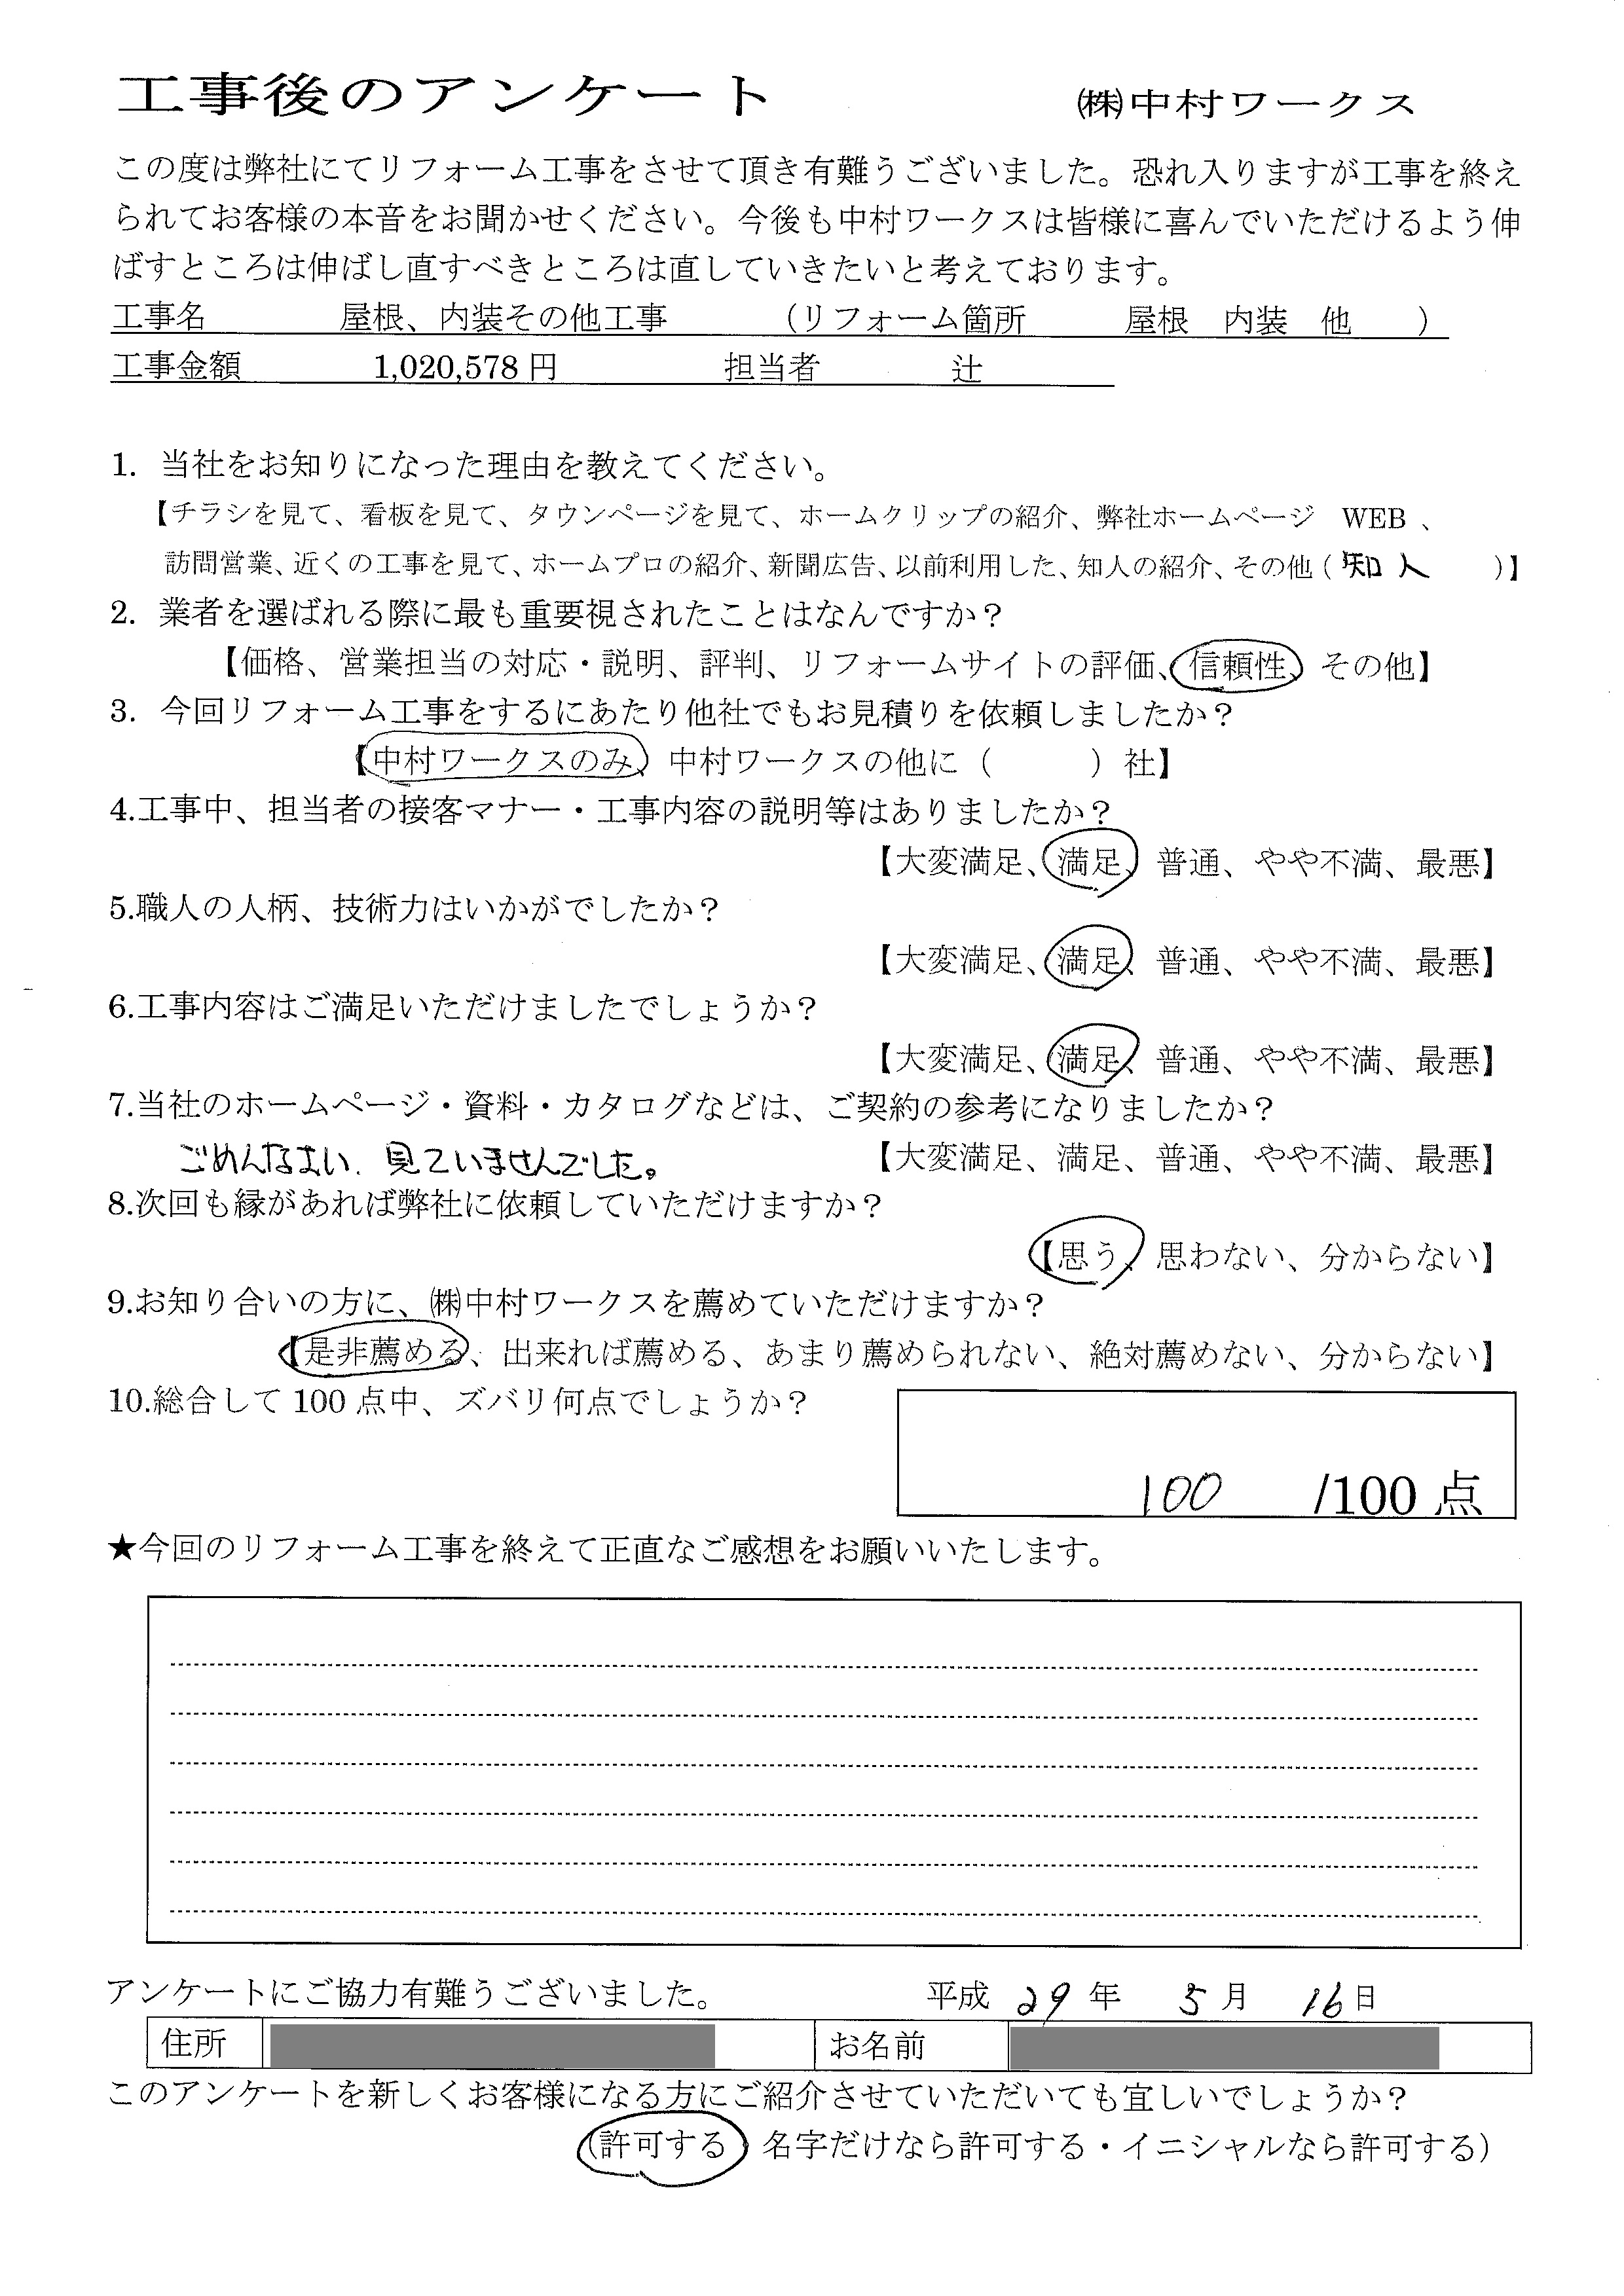 工事後のアンケート ㈱中村ワークス
この度は弊社にてリフォーム工事をさせて頂き有難うございました。恐れ入りますが工事を終え
られてお客様の本音をお聞かせください。今後も中村ワークスは皆様に喜んでいただけるよう伸
ばすところは伸ばし直すべきところは直していきたいと考えております。
工事名 屋根、内装その他工事 （リフォーム箇所 屋根 内装 他 ）
工事金額 1,020,578 円 担当者 辻
1. 当社をお知りになった理由を教えてください。
【チラシを見て、看板を見て、タウンページを見て、ホームクリップの紹介、弊社ホームページ WEB 、
訪問営業、近くの工事を見て、ホームプロの紹介、新聞広告、以前利用した、知人の紹介、その他（ 知人 ）】
2. 業者を選ばれる際に最も重要視されたことはなんですか？
【価格、営業担当の対応・説明、評判、リフォームサイトの評価、信頼性、その他】
3. 今回リフォーム工事をするにあたり他社でもお見積りを依頼しましたか？
【中村ワークスのみ、中村ワークスの他に（ ）社】
4.工事中、担当者の接客マナー・工事内容の説明等はありましたか？
【大変満足、満足、普通、やや不満、最悪】
5.職人の人柄、技術力はいかがでしたか？
【大変満足、満足、普通、やや不満、最悪】
6.工事内容はご満足いただけましたでしょうか？
【大変満足、満足、普通、やや不満、最悪】
7.当社のホームページ・資料・カタログなどは、ご契約の参考になりましたか？
ごめんなさい、見ていませんでした。 【大変満足、満足、普通、やや不満、最悪】
8.次回も縁があれば弊社に依頼していただけますか？
【思う、思わない、分からない】
9.お知り合いの方に、㈱中村ワークスを薦めていただけますか？
【是非薦める、出来れば薦める、あまり薦められない、絶対薦めない、分からない】
10.総合して 100 点中、ズバリ何点でしょうか？
100 /100 点
★今回のリフォーム工事を終えて正直なご感想をお願いいたします。
アンケートにご協力有難うございました。 平成 29 年 5 月 16 日
住所 お名前
このアンケートを新しくお客様になる方にご紹介させていただいても宜しいでしょうか？
（許可する・名字だけなら許可する・イニシャルなら許可する）